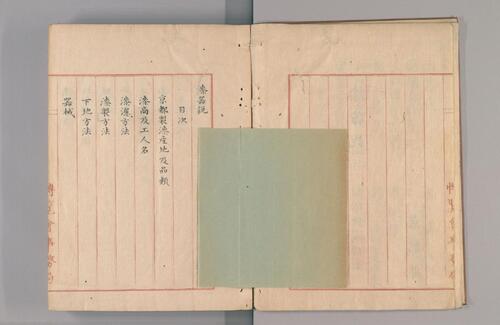 漆器説
目次
京都製漆産地及品類
漆商及工人名
漆濾方法
漆製方法
下地方法
器械
博覧會事務局